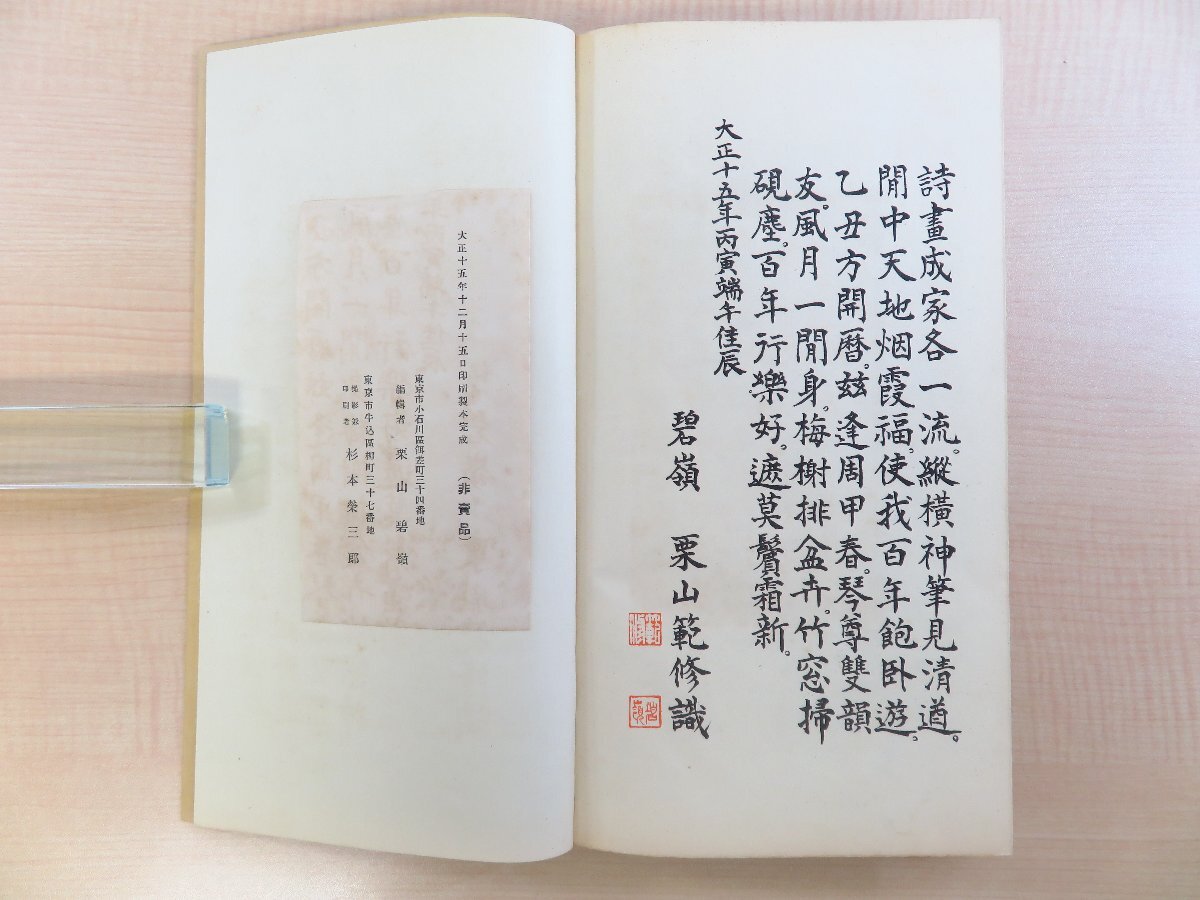 詩畫成家各一流。縱橫神筆見清遒。
閒中天地烟霞福。使我百年飽臥遊。
乙丑方開曆。玆逢周甲春。琴尊雙韻
友。風月一閒身。梅榭排盆卉。竹窓掃
硯塵。百年行樂好。遮莫鬢霜新。
大正十五年丙寅端午佳辰
碧嶺 栗山範修識
碧嶺
大正十五年十二月十五日印刷製本完成 (非賣品)
東京市小石川區餌差町三十四番地
編輯者 栗山碧嶺
東京市牛込區柳町三十七番地
印刷者 杉本榮三郎